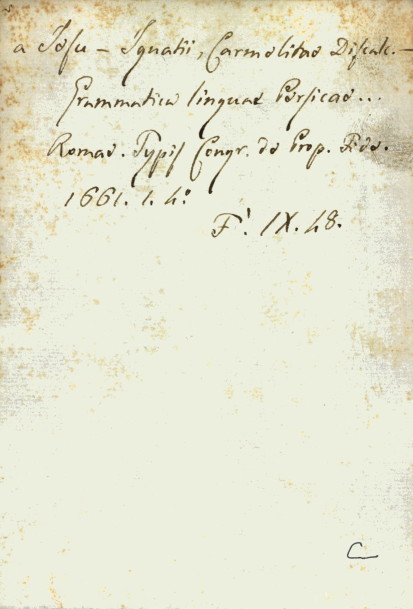 a Jesu - Ignatii, Carmelitae Discalc. -
Grammatica linguae Persicae...
Romae. Typis Congr. de Prop. Fide.
1661. 1. 4º
F'. IX. 48.
C